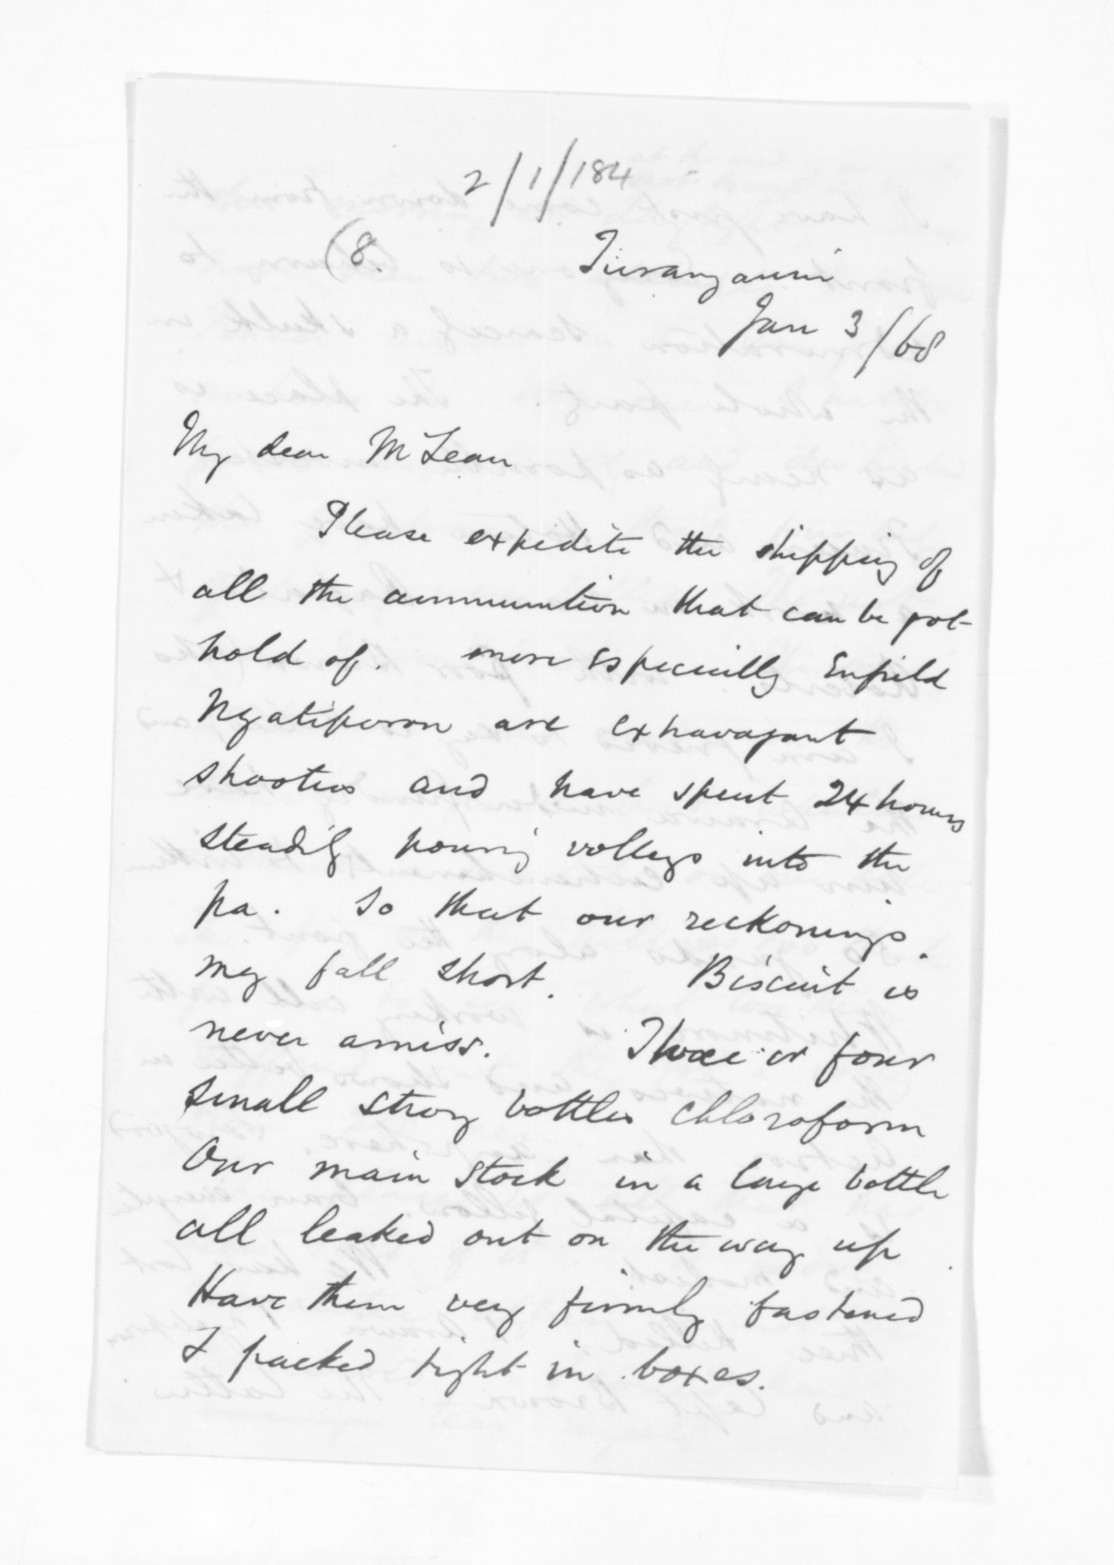 2/1/184
(8.
Turanganui
Jan 3/68
My dear McLean
Please expedite the shipping of
all the ammunition that can be got
hold of. more especially Enfield
Ngatiporou are exhavagant
shooters and have spent 24 hours
steadily pouring volleys into the
pa. So that our reckonings.
may fall short. Biscuit is
never amiss. Three or four
small strong bottles chloroform
Our main stock in a large bottle
all leaked out on the way up.
Have them very firmly fastened
& packed tight in boxes.